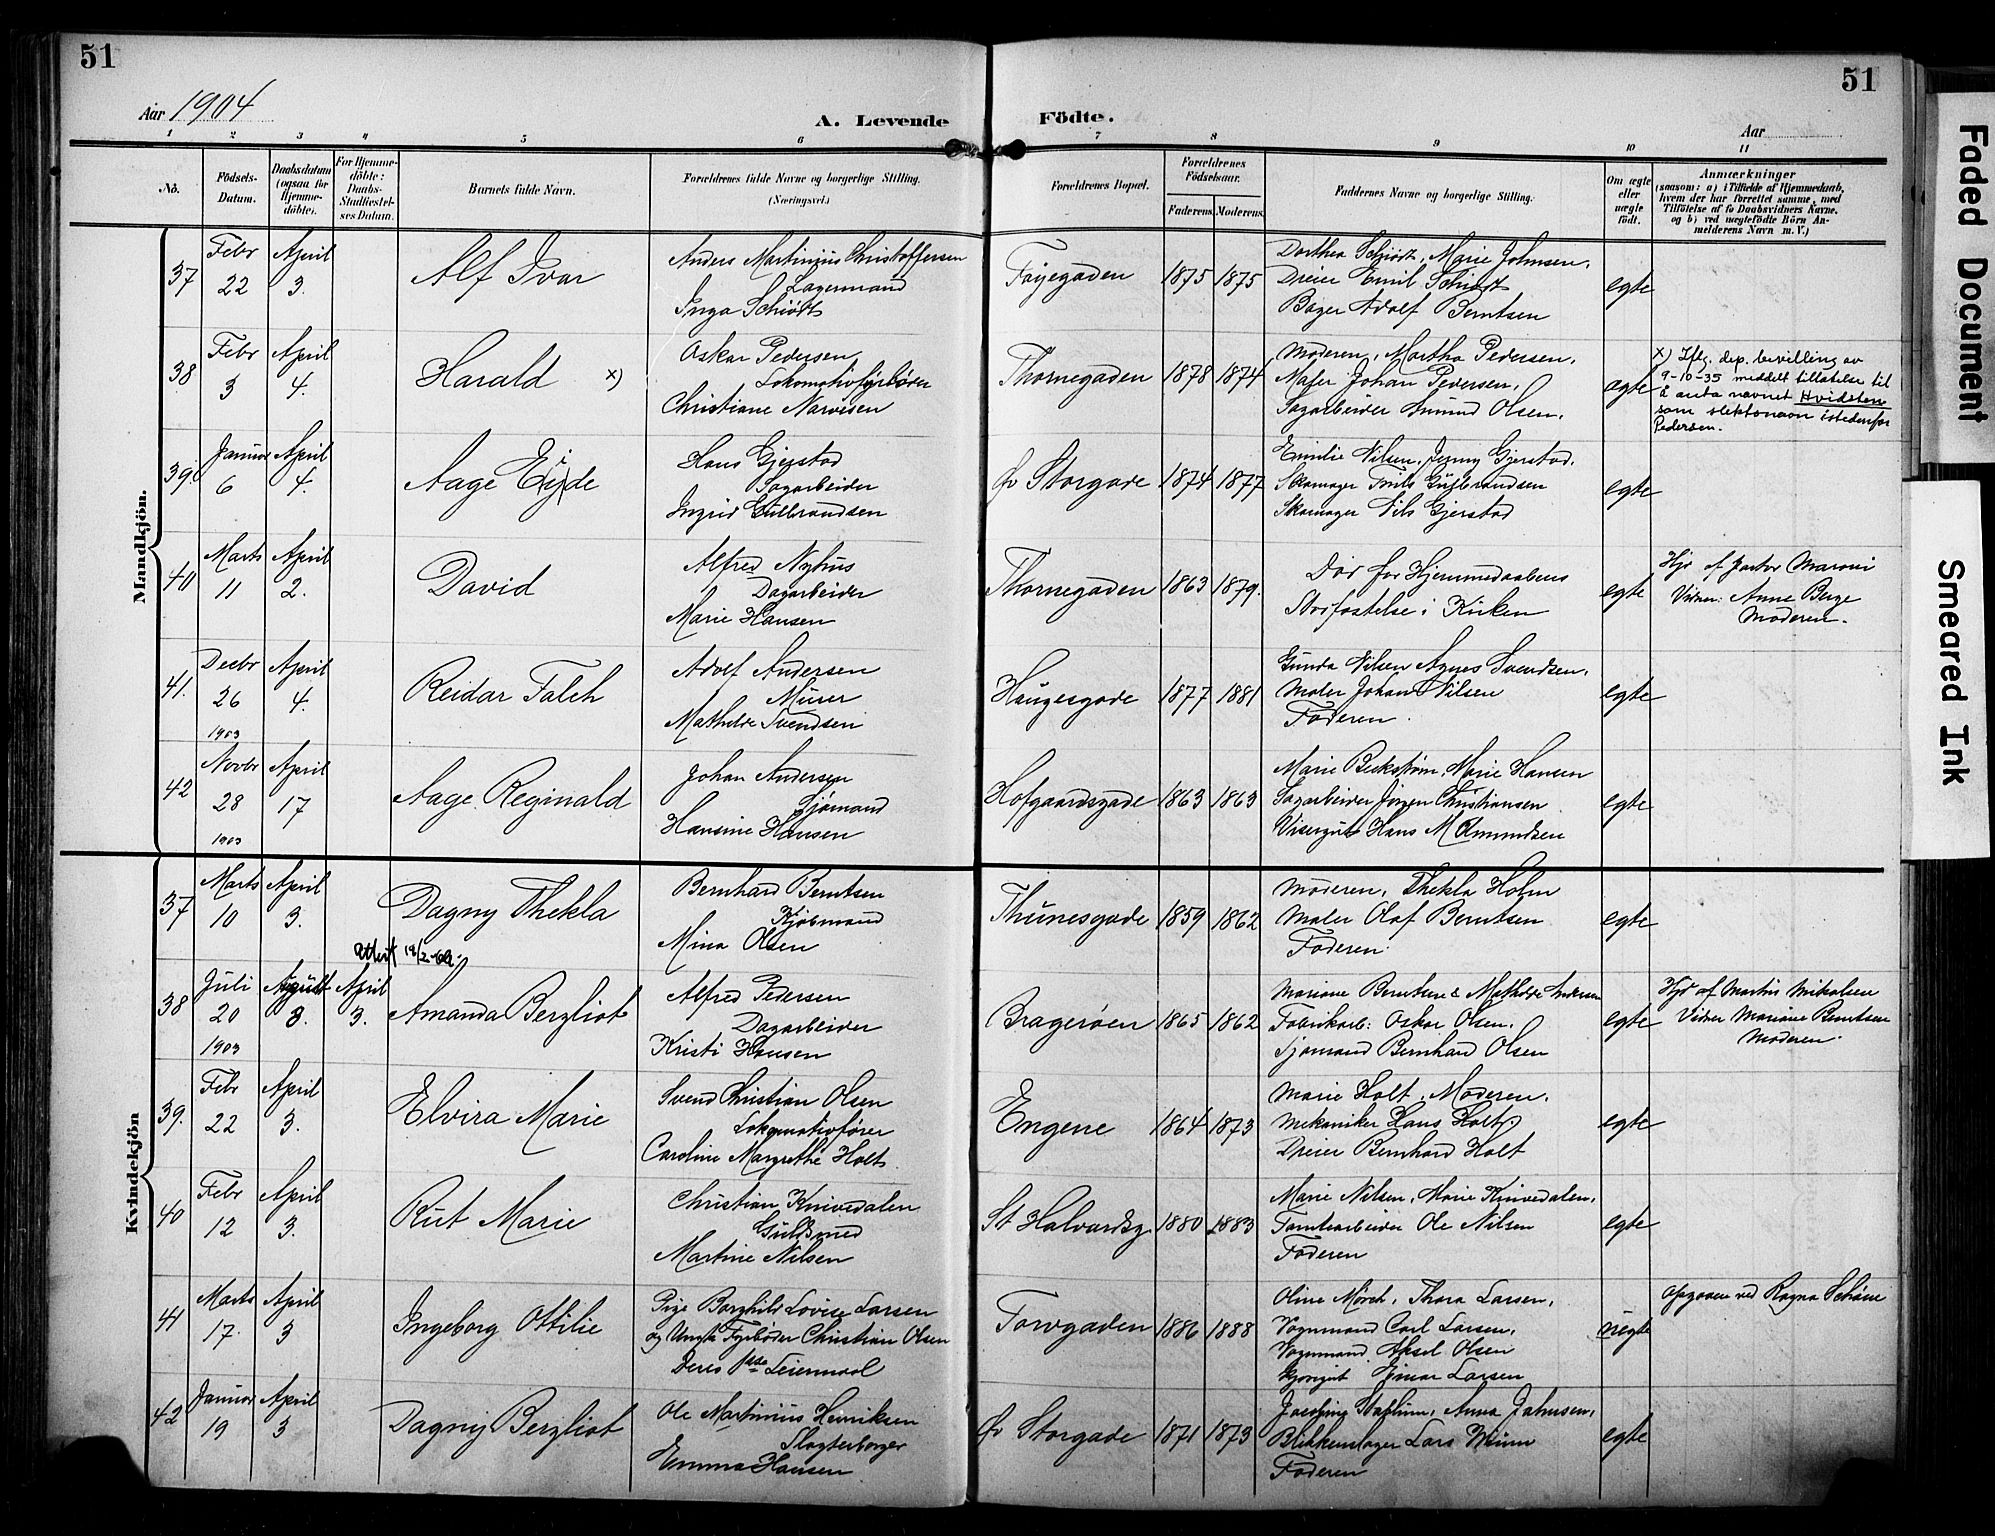 51
51
Aar 1904
A. Levende Födte.
Aar
1 2 3 4 5 6 7 8 9 10 11
No.
Födsels-
Datum.
Daabsdatum
(ogsaa for
Hjemme-
döbte).
For Hjemme-
döbte:
Daabs-
Stadfæstel-
ses Datum.
Barnets fulde Navn.
Forældrenes fulde Navne og borgerlige Stilling.
(Næringsvei.)
Forældrenes Bopæl.
Forældrenes
Födselsaar.
Faderens. Moderens.
Faddernes Navne og borgerlige Stilling.
Om ægte
eller
uægte
födt.
Anmærkninger
(saasom: a) i Tilfælde af Hjemmedaab,
hvem der har forrettet samme, med
Tilföielse af to Daabsvidners Navne.
og b) ved uægtefödte Börn An-
melderens Navn m. V.)
Mandkjön.
37
Febr
22
April
3.
Alf Ivar
Anders Martinius Christoffersen
Lagermand
Inga Schiødt
Føyegaden
1875 1875
Dorthea Schiødt, Marie Johnsen,
Dreier Emil Schiødt
Bager Adolf Berntsen
egte
38
Febr
3
April
4.
Harald x)
Oskar Pedersen
Lokomotivfyrbøder
Christiane Narvesen
Thornegaden
1878 1874
Moderen, Martha Pedersen,
Maler Johan Pedersen,
Sagarbeider Amund Olsen.
ægte
x) Iflg. dep. bevilling av
9-10-35 meddelt tillatelse til
å anta navnet Hvidsten
som slektsnavn istedenfor
Pedersen.
39.
Januar
6
April
4.
Aage Eide
Hans Gjerstad
Sagarbeider
Ingrid Gulbrandsen
Øv Storgade
1874 1877
Emilie Nilsen, Jenny Gjerstad,
Skomager Gulbrandsen
Skomager Nils Gjerstad
egte
40
Marts
11
April
2.
David
Alfred Nyhus
Dagarbeider
Marie Hansen
Thornegaden
1863 1879.
Død før Hjemmedaabens
Stadfæstelse i Kirken
egte
Hjd af Pastor Maroni
Vidner: Anne Berge
Moderen.
41.
Decbr
26
1903
April
4.
Reidar Falch
Adolf Andersen
Murer
Mathilde Svendsen
Haugesgade
1877 1881
Gunda Nilsen Agnes Svendsen,
Maler Johan Nilsen
Faderen.
egte
42
Novbr
28
1903
April
17
Aage Reginald
Johan Andersen
Sjømand
Hansine Hansen
Hofgaardsgade
1863 1863
Marie Beckstrøm, Marie Hansen
Sagarbeider Jørgen Christiansen
Visergut Hans M Amundsen
egte
Kvindekjön
37
Marts
10
April
3.
Dagny Thekla
Bernhard Berntsen
Kjøbmand
Mina Olsen
Thunesgade
1859 1862
Moderen, Thekla Holm
Maler Olaf Berntsen
Faderen.
egte
38
Juli
20
1903
August
3.
April
3.
Amanda Bergliot
Alfred Pedersen
Dagarbeider
Kristi Hansen
Bragerøen
1865 1862
Mariane Berntsen & Mathilde Andersen
Fabrikarb: Oskar Olsen,
Sjømand Bernhard Olsen
egte
Hjd af Martin Mikalsen
Vidner Mariane Berntsen
Moderen.
39.
Febr
22
April
3.
Elvira Marie
Svend Christian Olsen
Lokomotivfører
Caroline Margrethe Holt.
Engene
1864 1873
Marie Holt, Moderen,
Mekaniker Hans Holt,
Dreier Bernhard Holt
egte
40
Febr
12
April
3.
Rut Marie
Christian Knivedalen
Guldsmed
Martine Nilsen
St Halvardsg.
1880 1883
Marie Nilsen, Marie Knivedalen,
Tomtearbeider Ole Nilsen
Faderen
egte
41
Marts
17.
April
3
Ingeborg Ottilie
Pige Borghild Lovise Larsen
og Ungk Fyrbøder Christian Olsen
Deres 1ste Leiermaal
Torvgaden
1886 1888
Oline Mørch, Thora Larsen,
Vognmand Carl Larsen,
Vognmand Aksel Olsen
Einar Larsen
uegte
Opgaven ved Ragna Schøne
42
Januar
19
April
3
Dagny Bergliot
Ole Martinius Henriksen
Slagterborger
Emma Hansen
Øv Storgade
1871 1873
Anna Jahnsen,
Blikkenslager Lars
Faderen
egte
Faded Document
Smeared Ink